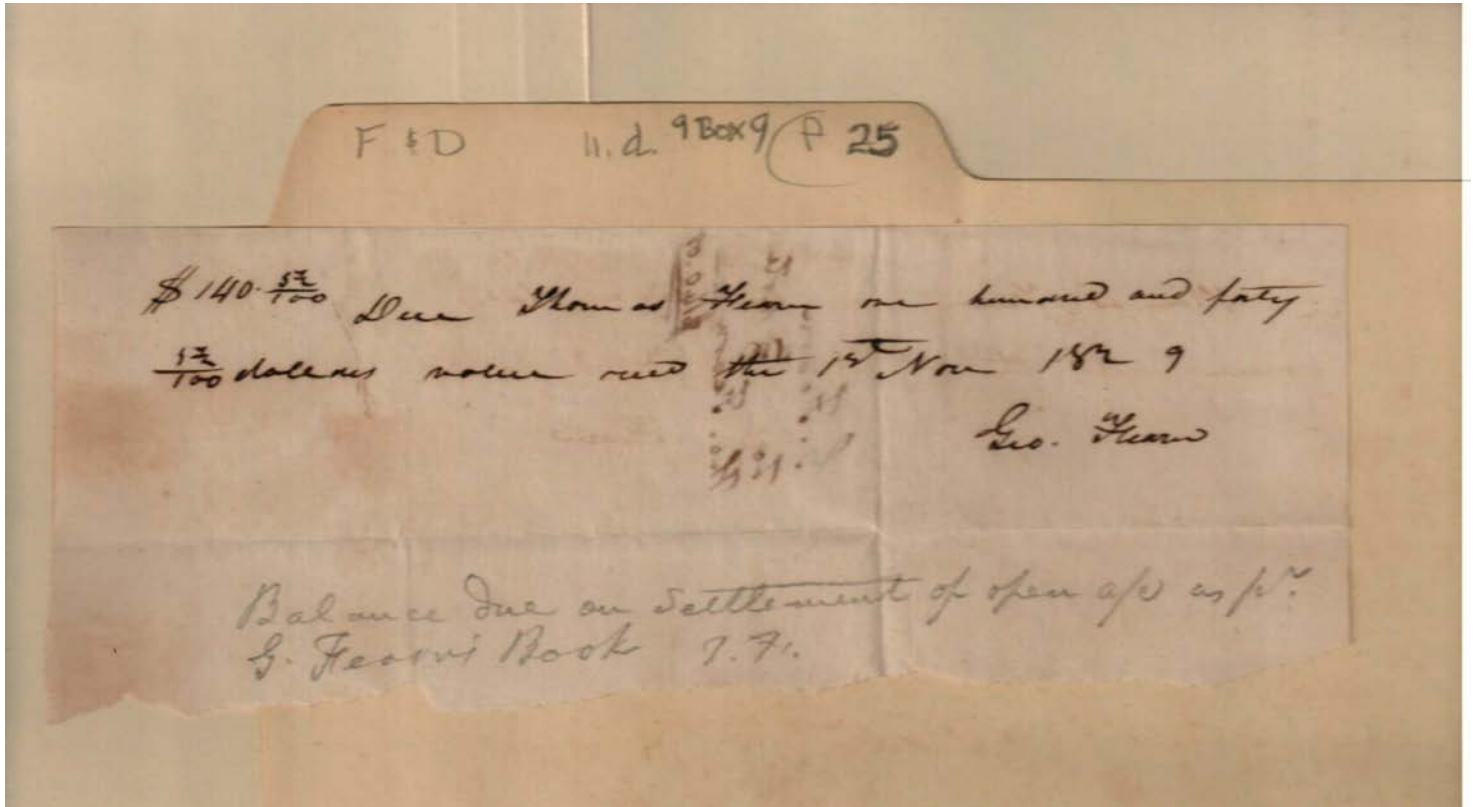 F & D n.d. 9 Box 9 P 25
$ 140. 52/100 Due Thomas Fearn one hundred and forty
52/100 dollars value recd the 1st Nov 182 9
Geo. Fearn
Balance due on Settlement of open a/c as pr.
G. Fearn's Book T. F.